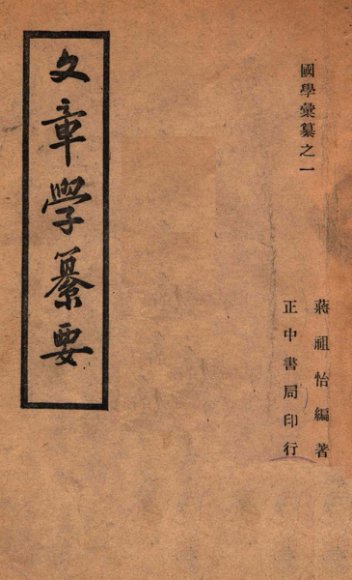 國學彙纂之一
蔣祖怡編著
正中書局印行
文章學纂要